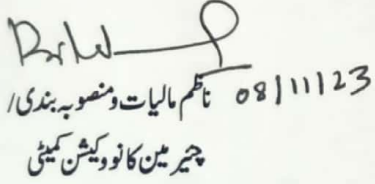 08/11/23
ناظم مالیات و منصوبہ بندی/
چیرمین کانووکیشن کمیٹی